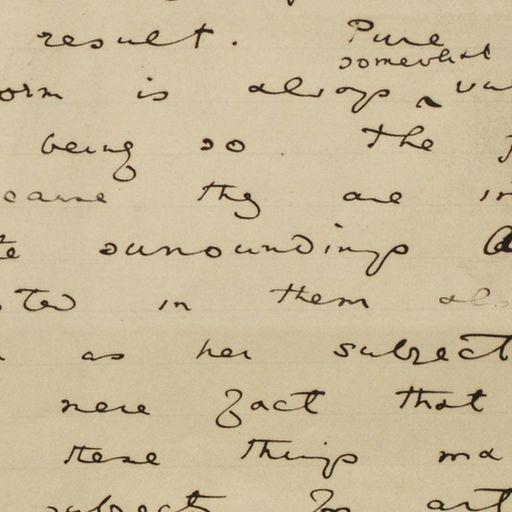 result. Pure
somewhat
orm is always
being so. The
they are in
surroundings
in them also
as her subject
mere fact that
these things ma
subject for art